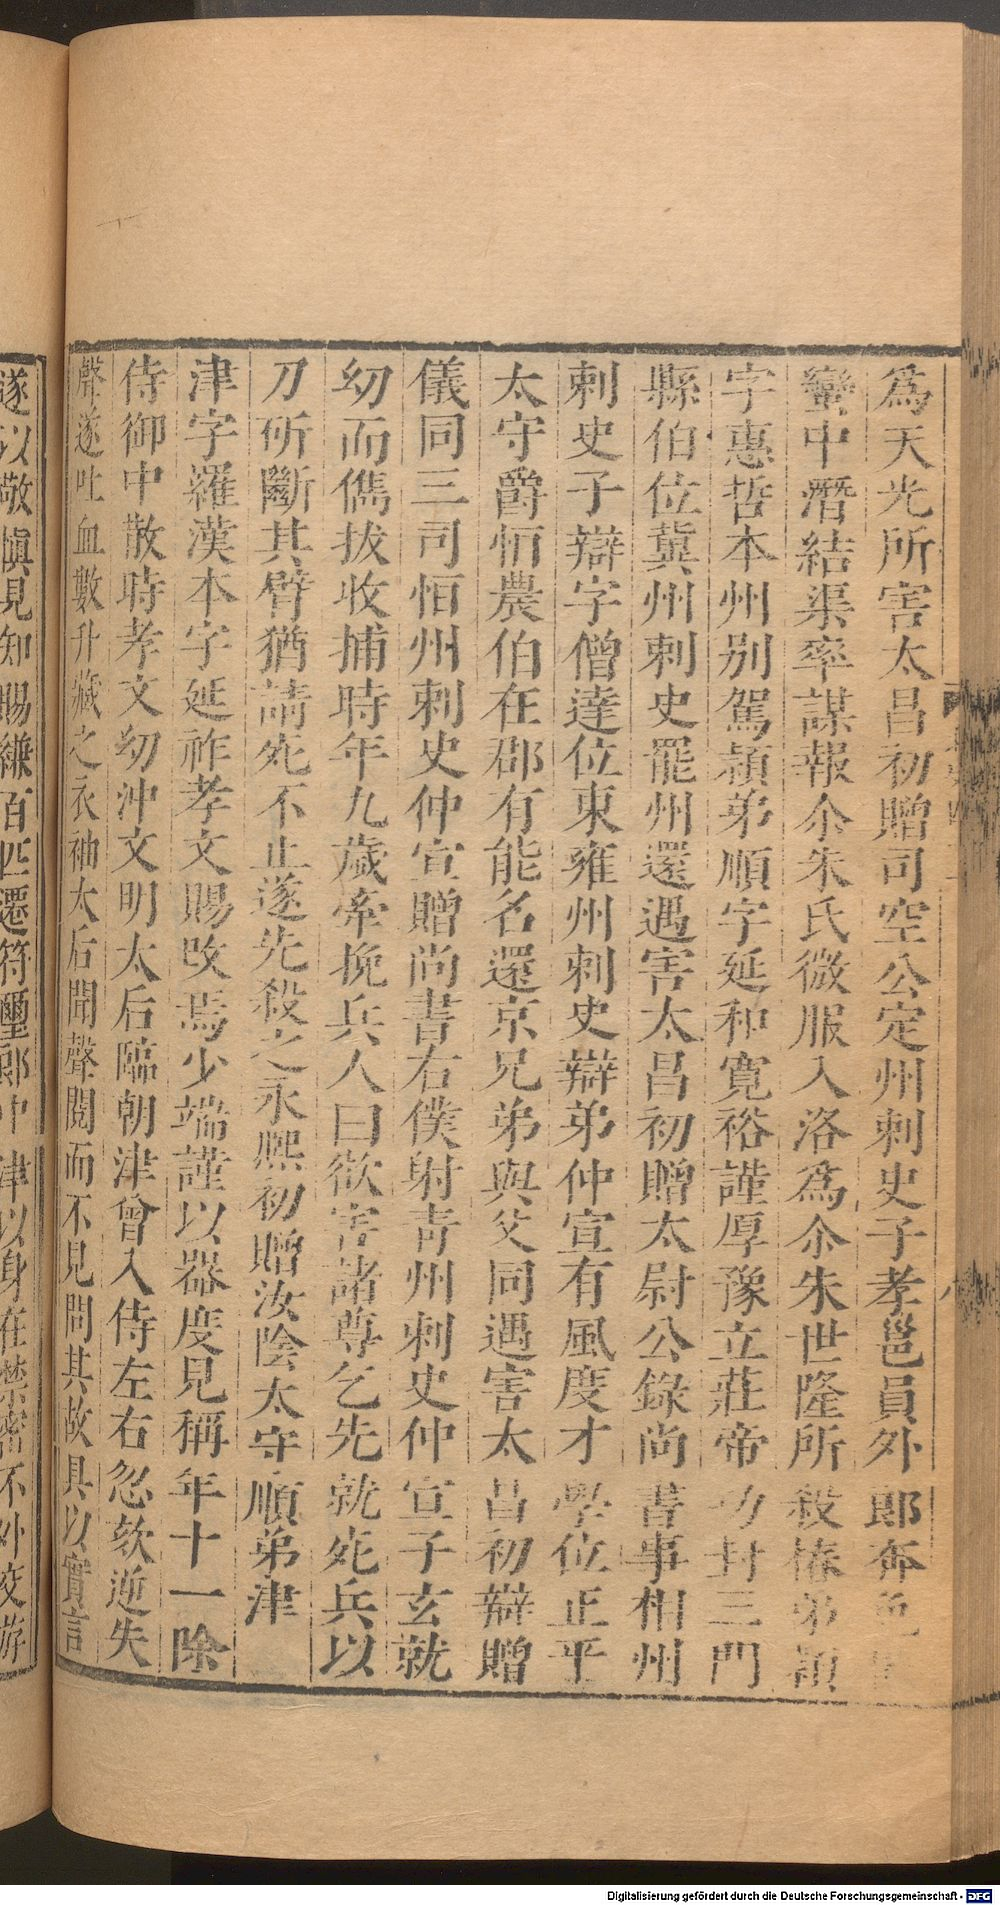 爲天光所害太昌初贈司空公定州刺史子孝邕員外郞奔
蠻中潛結渠率謀報尒朱氏微服入洛爲尒朱世隆所殺椿弟穎
字惠哲本州別駕穎弟順字延和寬裕謹厚豫立莊帝功封三門
縣伯位冀州刺史罷州還遇害太昌初贈太尉公錄尚書事相州
刺史子辯字僧達位東雍州刺史辯弟仲宣有風度才學位正平
太守爵恒農伯在郡有能名還京兄弟與父同遇害太昌初辯贈
儀同三司恒州刺史仲宣贈尚書右僕射青州刺史仲宣子玄就
幼而儁拔收捕時年九歲牽挽兵人曰欲害諸尊乞先就死兵以
刀斫斷其臂猶請死不止遂先殺之永熙初贈汝陰太守順弟津
津字羅漢本字延祚孝文賜改焉少端謹以器度見稱年十一除
侍御中散時孝文幼沖文明太后臨朝津曾入侍左右忽欬逆失
聲遂吐血數升藏之衣袖太后聞聲閱而不見問其故具以實言
遂以敬愼見知賜縑百匹遷符璽郎中津以身在禁密不外交游
Digitalisierung gefördert durch die Deutsche Forschungsgemeinschaft - DFG